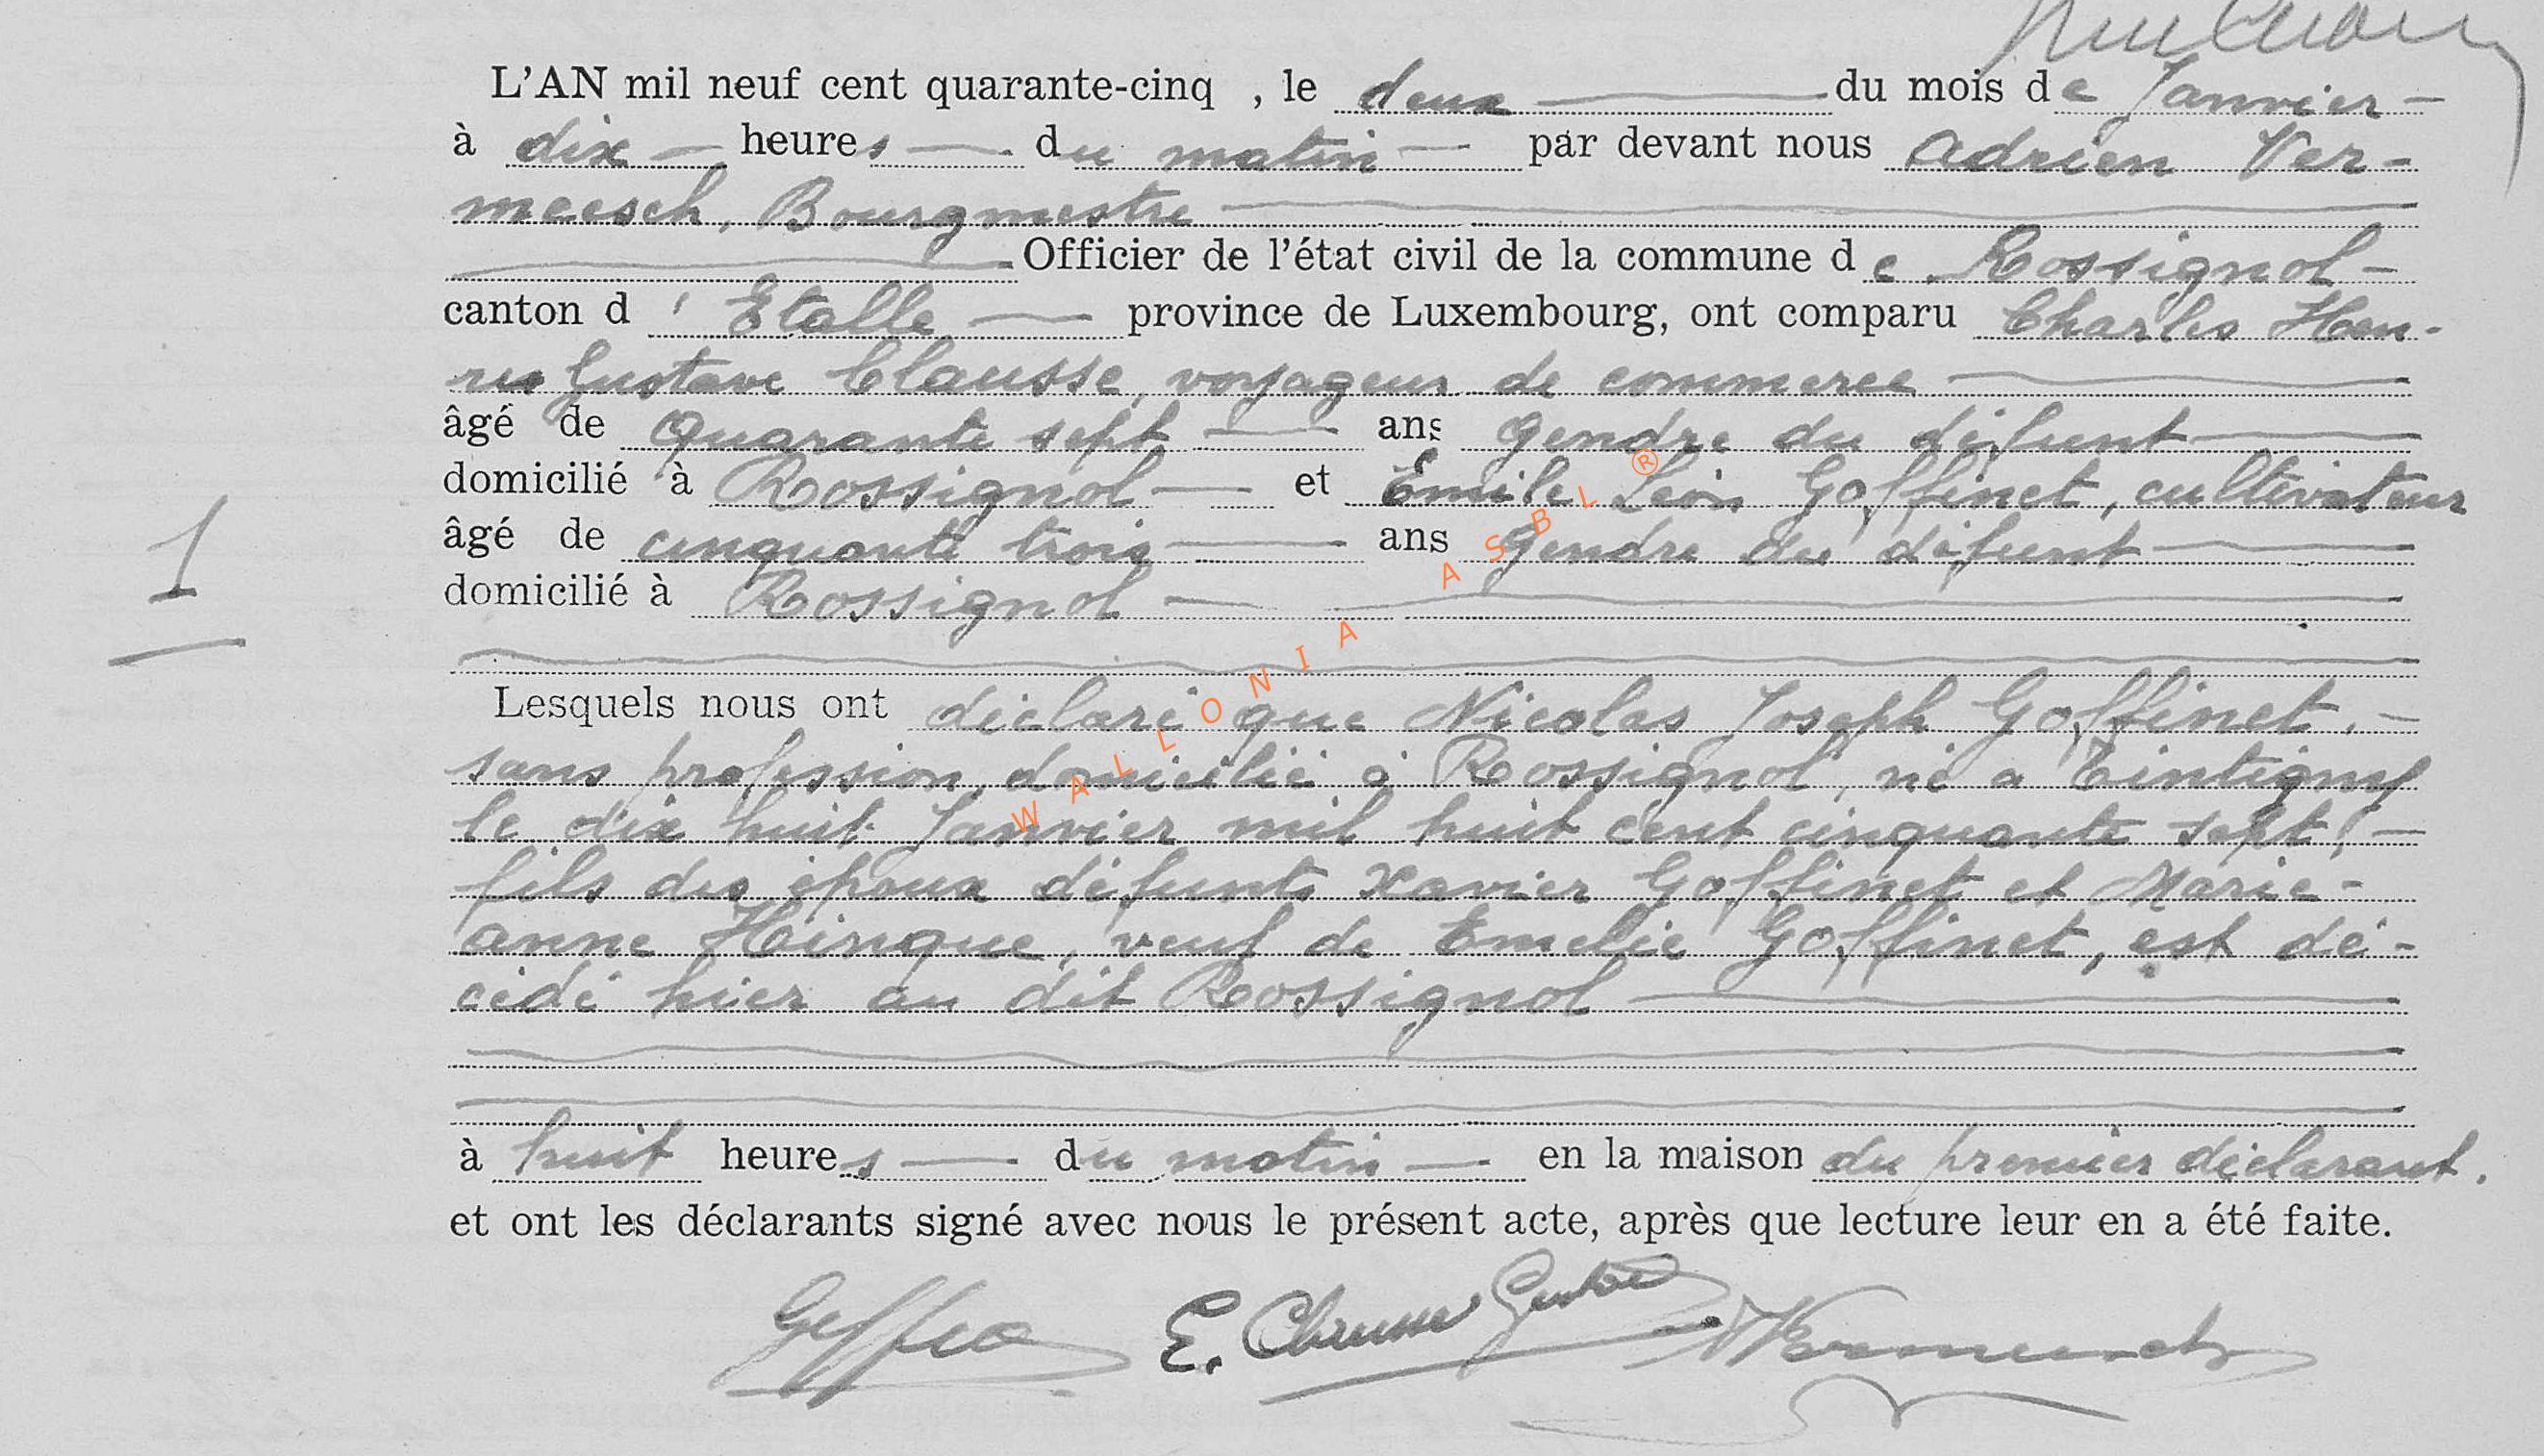 L'AN mil neuf cent quarante-cinq , le deux du mois de Janvier -
à dix - heures - du matin - par devant nous Adrien Ver-
meesch, Bourgmestre
Officier de l'état civil de la commune de Rossignol -
canton d' Etalle - province de Luxembourg, ont comparu Charles Hen-
ri Gustave Clausse, voyageur de commerce
âgé de quarante sept ans gendre du défunt
domicilié à Rossignol - et Emile Léon Goffinet, cultivateur
âgé de cinquante trois ans gendre du défunt
domicilié à Rossignol
1
Lesquels nous ont déclaré que Nicolas Joseph Goffinet, -
sans profession, domicilié à Rossignol, né a Tintigny
le dix huit Janvier mil huit cent cinquante sept, -
fils des époux défunts Xavier Goffinet et Marie-
anne Hinque, veuf de Emelie Goffinet, est dé-
cédé hier au dit Rossignol
à huit heures - du matin - en la maison du premier déclarant.
et ont les déclarants signé avec nous le présent acte, après que lecture leur en a été faite.
E. Clausse Gustave Vermeesch
WALLONIA ASBL ®